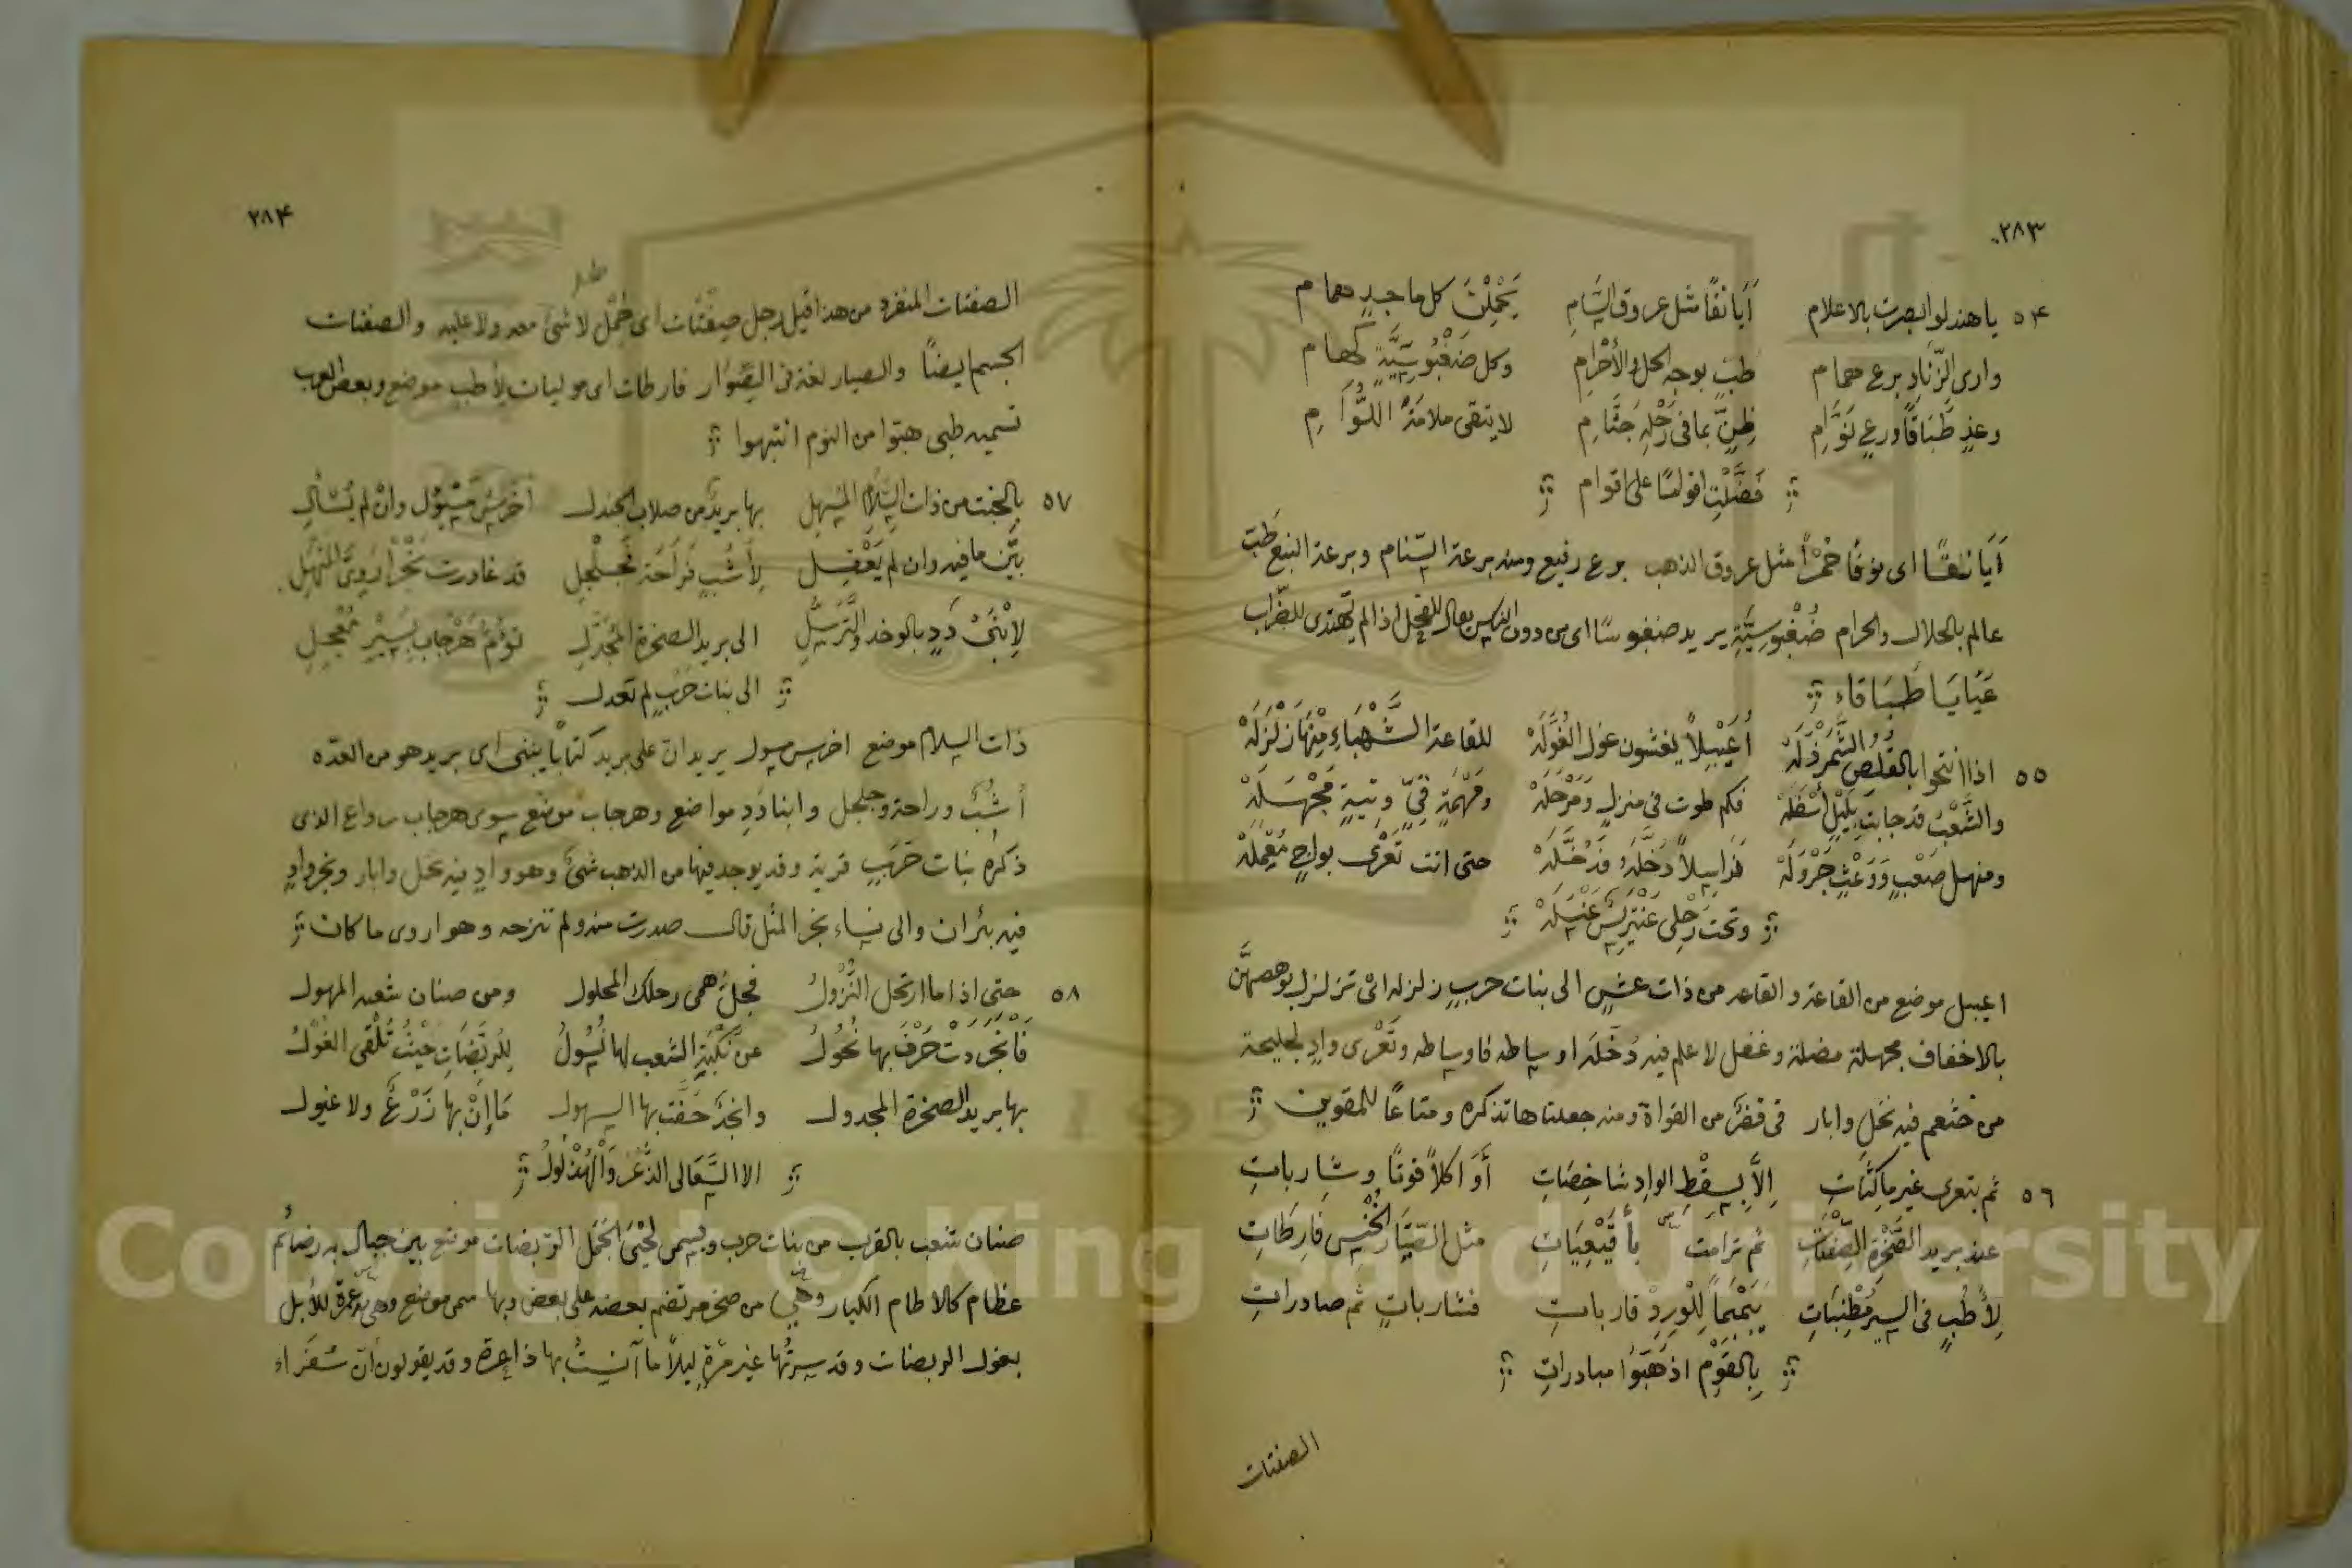 ٢٨٣
٥٤ يا هند لو ابصرت بالاعلام أَيانقًا مثل عروق السَّامِ يَحْمِلْنَ كل ماجدٍ همام
وارى الزّنادِ برع همام طَبٍ بوجه الحل والأحْرامِ وكل ضَغْبُوسِيَّةٍ كهام
وعذٍ طَبَاقًا ورعٍ نَوَّامِ ظنٍّ بما فى رَحْلِهِ جَثَّامِ لا يتقى ملامَةَ اللُّوَّامِ
فَضَّلْتِ اقوامًا على اقوام
أَيَانقًا اى نوقًا حُمْرًا مثل عروق الذهب برع رفيع ومنه برعة السّنام وبرعة النبع طَبّ
عالم بالحلال والحرام ضُغْبُوسِيَّةٍ يريد ضغبوسًا اى من دون الناس يقال للفحل اذا لم يهتدى للضّراب
عَيَايَا طَبَاقَاء
٥٥ اذا انتحوا بالقُلُصِ الشَّمَرْذَلَهْ أُعَيْبِلاً يغشون غول الغُوَّلَهْ للقاعة الشَّهْبَاءِ مِنْهَا زَلْزَلَهْ
والشَّعْبُ قد جابت بِلَيْلٍ أَسْفَلَهْ فكم طوت فى منزلٍ وَمَرْحَلَهْ ومَهْمَهٍ قِيٍّ وتيهٍ مَجْهَلَهْ
ومنهل صَعْبٍ وَوَعْثٍ جَرْوَلَهْ حتى اتت تَعْرَى بواجٍ مُعْمَلَهْ
وتحت رَحْلى عَنْتَرِيسٌ عَنْسَلَهْ
اعيبل موضع من القاعة والقاعه من ذات عش الى بنات حرب زلزله اى تزلزل بوهصهنّ
بالاخفاف مجهلة مضلة وغفل لا علم فيه دُخَّلَه اوساطه فاوساطه وتَعْرى وادٍ لجليحة
من خثعم فيه نخل وابار قى قفر من القواة ومنه جعلناها تذكره ومتاعًا للمقوين
٥٦ ثم بتعرى غير ماكثاتِ إلاَّ بِسِقْطِ الوادِ شاخصَاتِ أوَ اكلاً فوتًا وشارباتِ
عند بريد الصَّخْرَةِ الصِّفْتَاتِ ثم ترامت بأقيعيَاتِ مثل الصّيَارِ الخُنْسِ فارِطَاتِ
لِأَطُبٍ فى السير مُطْنِبَاتِ يَمْهًا لِلْوِرِدْ قاربات فشارباتٍ ثم صادراتِ
بِالقَوْمِ اذ هَبَّوُا مبادراتِ
الصفتات
٢٨٤
الصفتات المنفرد من هذا قيل رجل صِفْتَات اى حَمْل لا شئ معه ولا عليه والصفتات
الجسم ايضًا والصيار لغة فى الصِّوَار فارطات اى موليات لأطب موضع وبعض العرب
تسميه طبى هبّوا من النوم انتبهوا
٥٧ بالخبت من ذات السَّلاَمِ المسهل بها بريدٌ من صلاب الجندل أخرسُ مَسْئول وانْ لم يُسْأَلِ
بَيَّن ما فيه وان لم يَعْقِل لِأشُبٍ فَرَاحَة فَجُلْجُلِ قد غادرت نَجْرًا رَوِىَّ المنْهَلِ
لِابْنَىْ دَدٍ بالوخد والتَّرَسُّلِ الى بريد الصخرة المُجَدَّلِ تؤمُّ هَرْجَاب بِسَيْرٍ مُعْجِلِ
الى بنات حَرْبٍ لم تعدل
ذات السلام موضع اخرس مسول يريد انّ على بريد كتابًا يبنى اى بريد هو من العدّه
أشُبُ وراحة وجلجل وابنا دَدٍ مواضع وهرجاب موضع سوى هرجاب رداع الذى
ذكره بنات حَرَبٍ قرية وقد يوجد فيها من الذهب شئ وهو وادٍ فيه نخل وابار ونجر وادٍ
فيه بئران والى نساء نجر المثل قال صدرت منه ولم تنزحه وهو اروى ما كان
٥٨ حتى اذا ما ارتحل النُّزُولُ فجلَّ همى رحلك المحلول ومن صنان شعبه المهول
فَانْجَرَدَتْ حَرْفٌ بها نُحُولُ عن نَكْبَةِ الشعب لها نُسُولُ لِلرَبَضَاتِ حيْثُ تُلْقَى الغُوْلُ
بها بريد الصخرة المجدول وانجدٌ حَفَّتْ بها السهول مَا إِنْ بها زَرْعٌ ولا غيول
الا السَّعَالى الذُّعْرُ وَالهُذْلُولُ
صنان شعب بالقرب من بنات حرب ويسمى لَحْىَ الجَمَل الرّبضات موضع بين جبال به رضائم
عظام كالاطام الكبار وهى من صخر مرتضم بعضه على بعض وبها سمى موضع
بغول الربضات وقد سِرْتُها غير مَرَّةٍ ليلاً ما آنستُ بها ذاعرة وقد يقولون أنّ شَفَراء